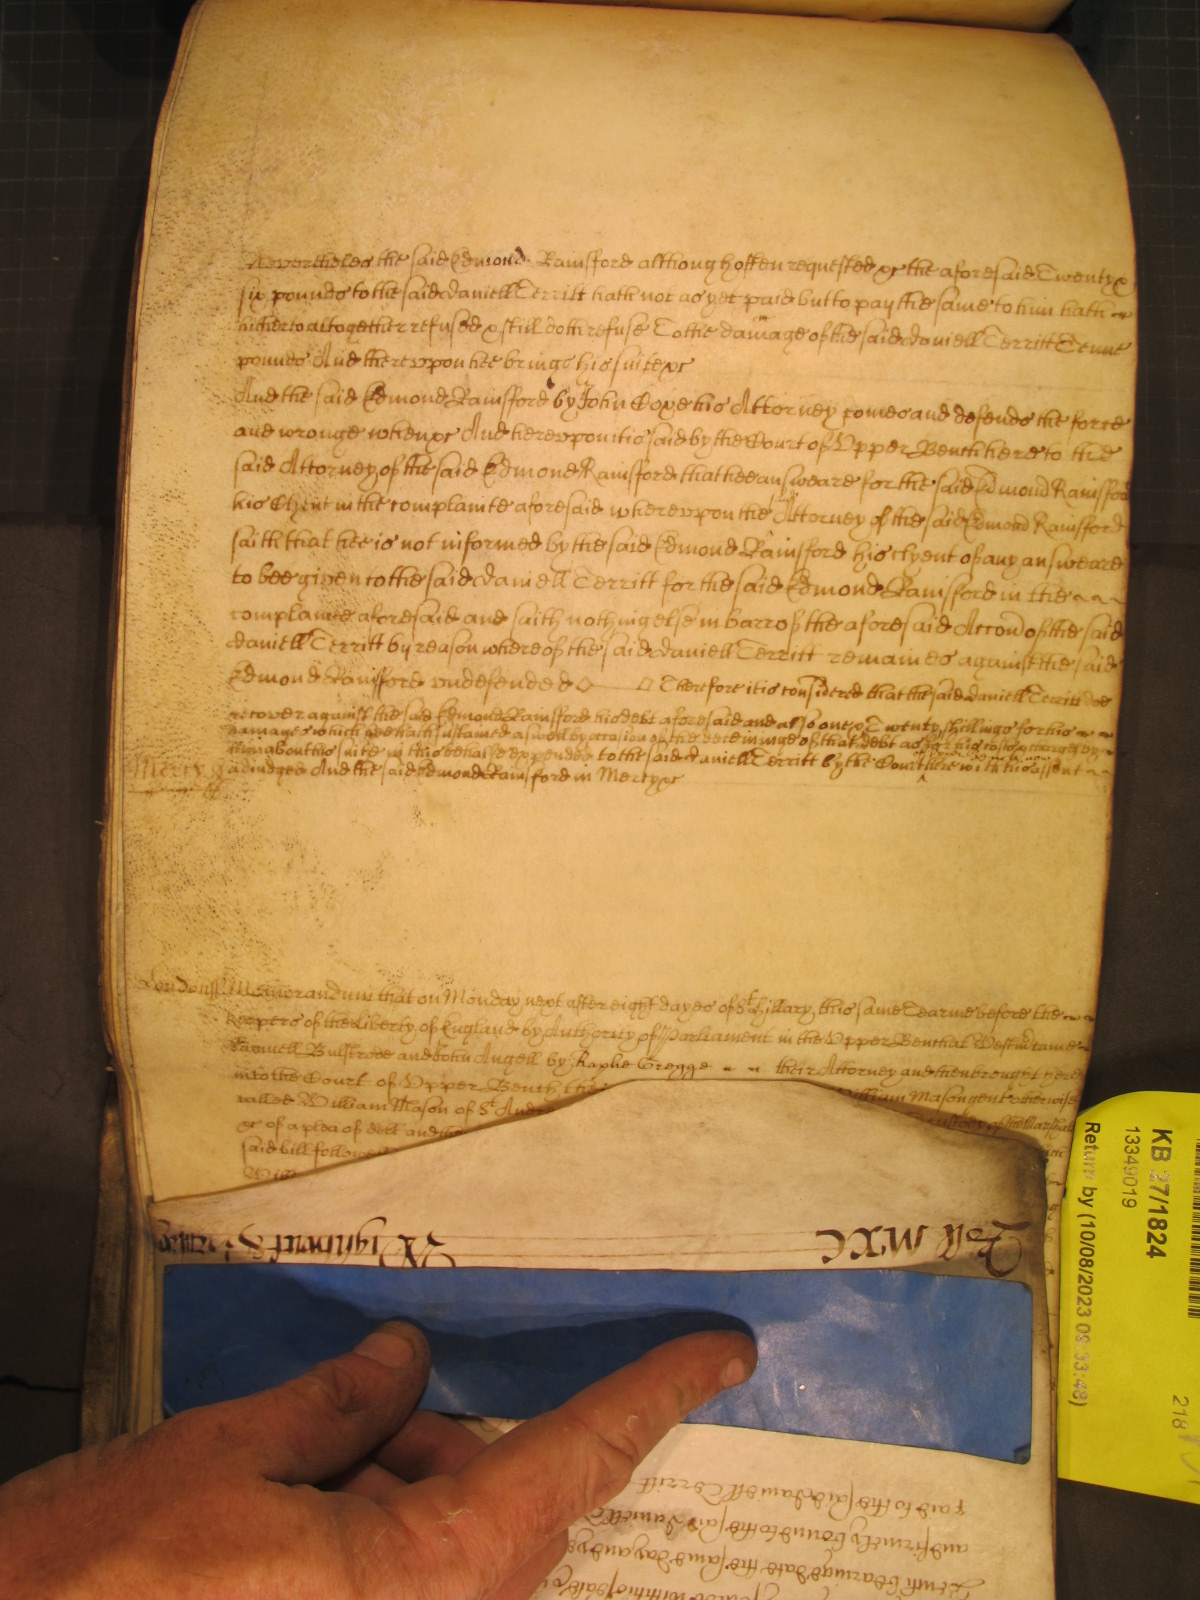 Neverthelesse the said Edmond Rainsford although often requested &c the aforesaid Twenty &
six pounds to the said Daniell Territt hath not as yet paid but to pay the same to him hath
hitherto altogether refused & still doth refuse To the damage of the said Daniell Territt Tenne
pounds And thereupon hee brings his suite &c
And the said Edmond Rainsford by John Coxe his Attorney comes and defends the force
and wronge when &c And hereupon it is said by the Court of Upper Bench here to the
said Attorney of the said Edmond Rainsford that hee answeare for the said Edmond Rainsford
his Clyent in the complainte aforesaid whereupon the said Attorney of the said Edmond Rainsford
saith that hee is not informed by the said Edmond Rainsford his clyent of any answeare
to bee given to the said Daniell Territt for the said Edmond Rainsford in the
complainte aforesaid and saith nothing else in barr of the aforesaid Accon of the said
Daniell Territt by reason whereof the said Daniell Territt remaines against the said
Edmond Rainsford undefended Therefore it is considered that the said Daniell Territt doe
recover against the said Edmond Rainsford his debt aforesaid and also one & Twenty shillings for his
damages which hee hath sustained aswell by occasion of the deteininge of that debt as for his costs & charges by
him about his suite in this behalfe expended to the said Daniell Territt by the Court here with his assent
Mercy adiudged And the said Edmond Rainsford in Mercy &c
London ss Memorandum that on Monday next after eight dayes of St Hillary this same Tearme before the
Keepers of the Liberty of England by Authority of Parliament in the Upper Bench at Westm came
Samuell Bulstrode and John Angell by Raphe Gregge their Attorney and then brought here
into the Court of Upper Bench then William Mason gent otherwise
called William Mason of St Andr custody of the Marshal
&c of a plea of debt and
said bill follow
Roll MXC
Wightwick &
KB 27/1824
13349019
Return by (10/08/2023 09:33:48)
218
paid to the said Daniell Territt
and firmely bound to the said Daniell
Tenth bearinge date the same day and